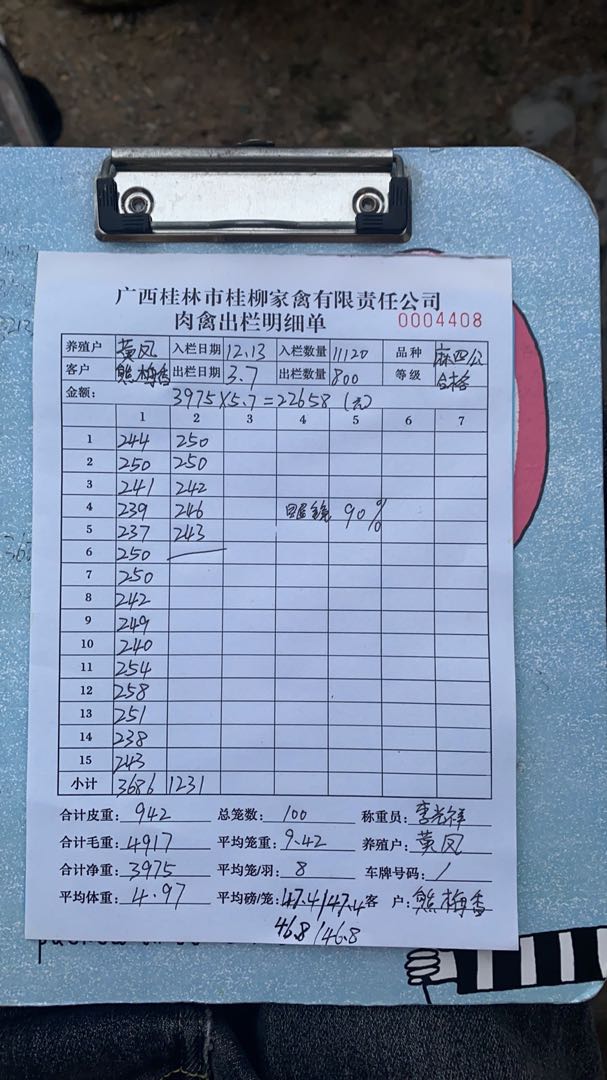 广西桂林市桂柳家禽有限责任公司
肉禽出栏明细单 0004408
养殖户 黄凤 入栏日期 12.13 入栏数量 11120 品种 麻四公
客户 熊梅香 出栏日期 3.7 出栏数量 800 等级 合格
金额: 3975×5.7=22658(元)
1 2 3 4 5 6 7
1 244 250
2 250 250
3 241 242
4 239 246 90%
5 237 243
6 250
7 250
8 242
9 249
10 240
11 254
12 258
13 251
14 238
15 243
小计 3686 1231
合计皮重: 942 总笼数: 100 称重员: 李光祥
合计毛重: 4917 平均笼重: 9.42 养殖户: 黄凤
合计净重: 3975 平均笼/羽: 8 车牌号码: /
平均体重: 4.97 平均磅/笼: 47.4/47.4 客 户: 熊梅香
46.8/46.8